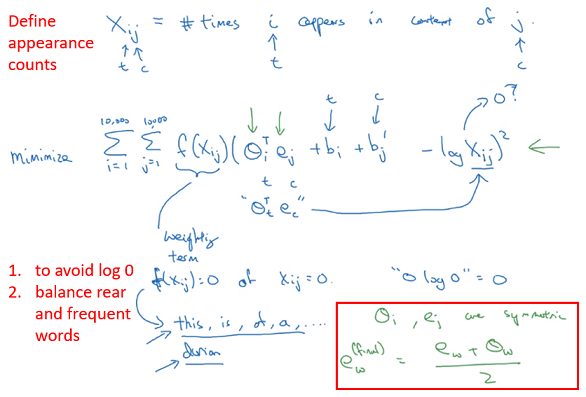 Define appearance counts
X_ij = # times i appears in context of j.
↑ ↑ ↑ ↑
t c t c
t c 0?
minimize Σ_{i=1}^{10,000} Σ_{j=1}^{10,000} f(X_ij) (θ_i^T e_j + b_i + b_j' - log X_ij)^2 ←
t c
"θ_t^T e_c"
weighting term
1. to avoid log 0
2. balance rear and frequent words
f(X_ij) = 0 if X_ij = 0. "0 log 0" = 0
→ this, is, of, a, ....
→ durian
θ_i, e_j are symmetric
e_w^(final) = (e_w + θ_w) / 2